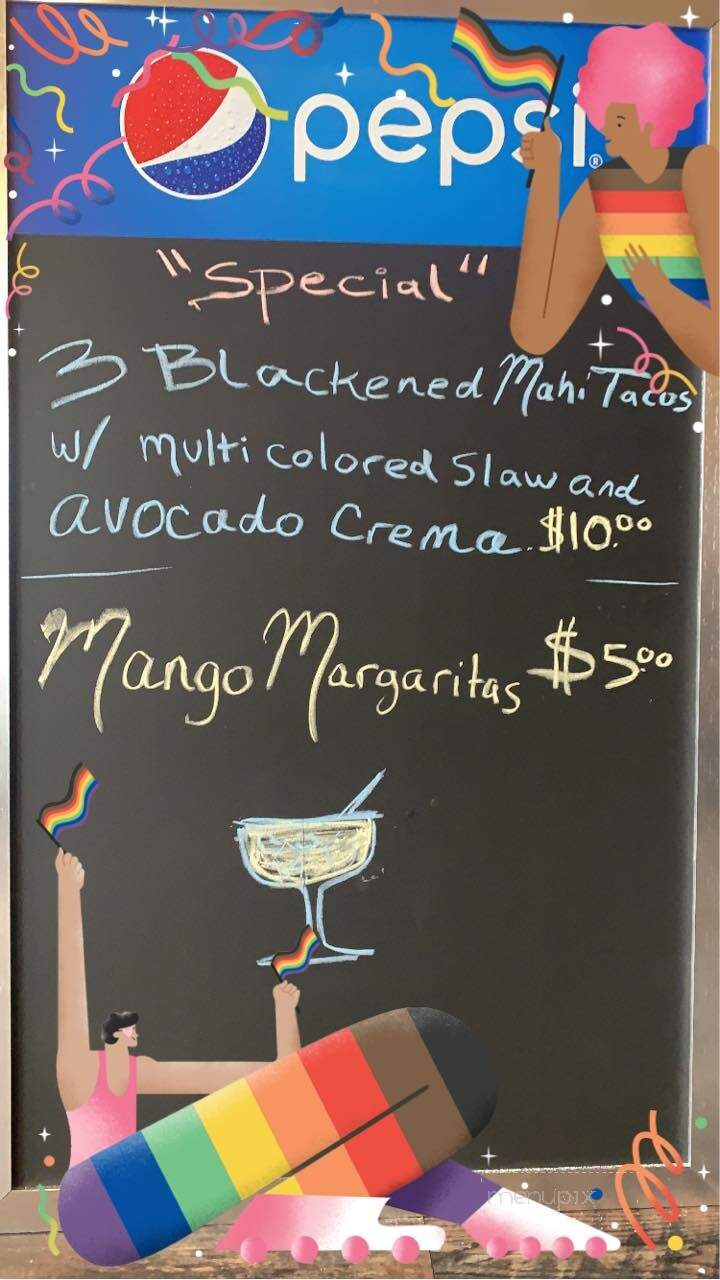 pepsi®
"Special"
3 Blackened Mahi Tacos
w/ multi colored Slaw and
avocado Crema. $10.00
Mango Margaritas $5.00
menupix